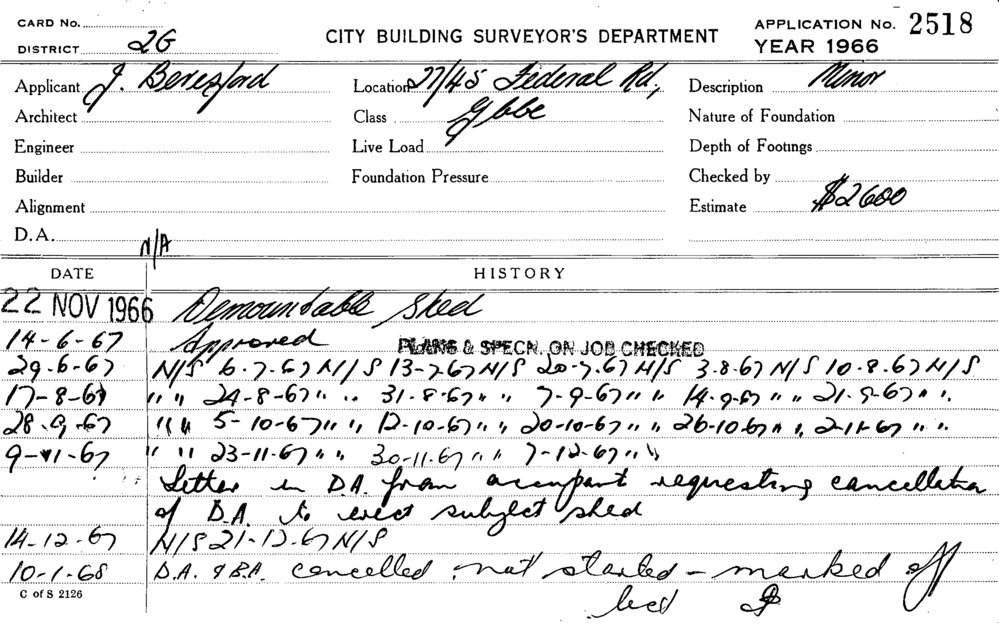 CARD No.
DISTRICT 2G
CITY BUILDING SURVEYOR'S DEPARTMENT
APPLICATION No. 2518
YEAR 1966
Applicant J. Beresford
Location 27/45 Federal Rd,
Description Minor
Architect
Class Glebe
Nature of Foundation
Engineer
Live Load
Depth of Footings
Builder
Foundation Pressure
Checked by
Alignment
Estimate $2600
D.A. N/A
DATE HISTORY
22 NOV 1966 Demountable Shed
14-6-67 Approved PLANS & SPECN. ON JOB CHECKED
29-6-67 N/S 6-7-67 N/S 13-7-67 N/S 20-7-67 N/S 3-8-67 N/S 10-8-67 N/S
17-8-67 " " 24-8-67 " " 31-8-67 " " 7-9-67 " " 14-9-67 " " 21-9-67 " "
28-9-67 " " 5-10-67 " " 12-10-67 " " 20-10-67 " " 26-10-67 " " 2-11-67 " "
9-11-67 " " 23-11-67 " " 30-11-67 " " 7-12-67 " "
Letter in D.A. from occupant requesting cancellation
of D.A. to erect subject shed
14-12-67 N/S 21-12-67 N/S
10-1-68 D.A. & B.A. cancelled, not started - marked off
C of S 2126